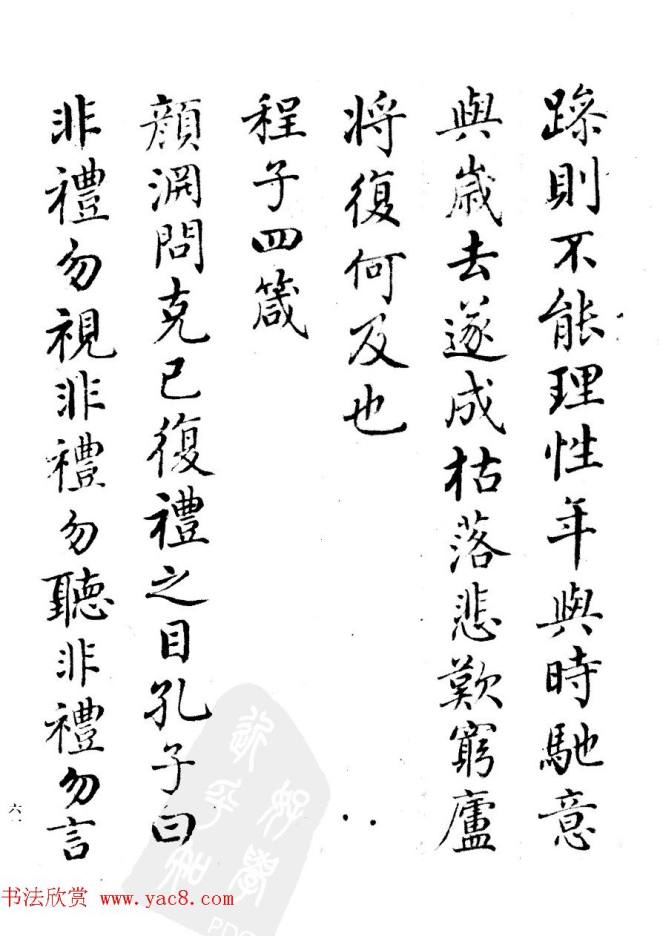 躁則不能理性年與時馳意
與歲去遂成枯落悲歎窮廬
將復何及也
程子四箴
顏淵問克己復禮之目孔子曰
非禮勿視非禮勿聽非禮勿言
六一
书法欣赏 www.yac8.com